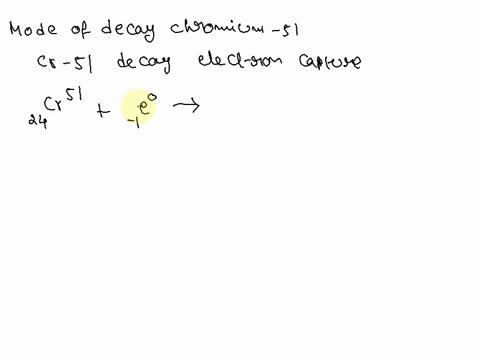 Mode of decay chromium-51
Cr-51 decay electron capture
₂₄Cr⁵¹ + ₋₁e⁰ →